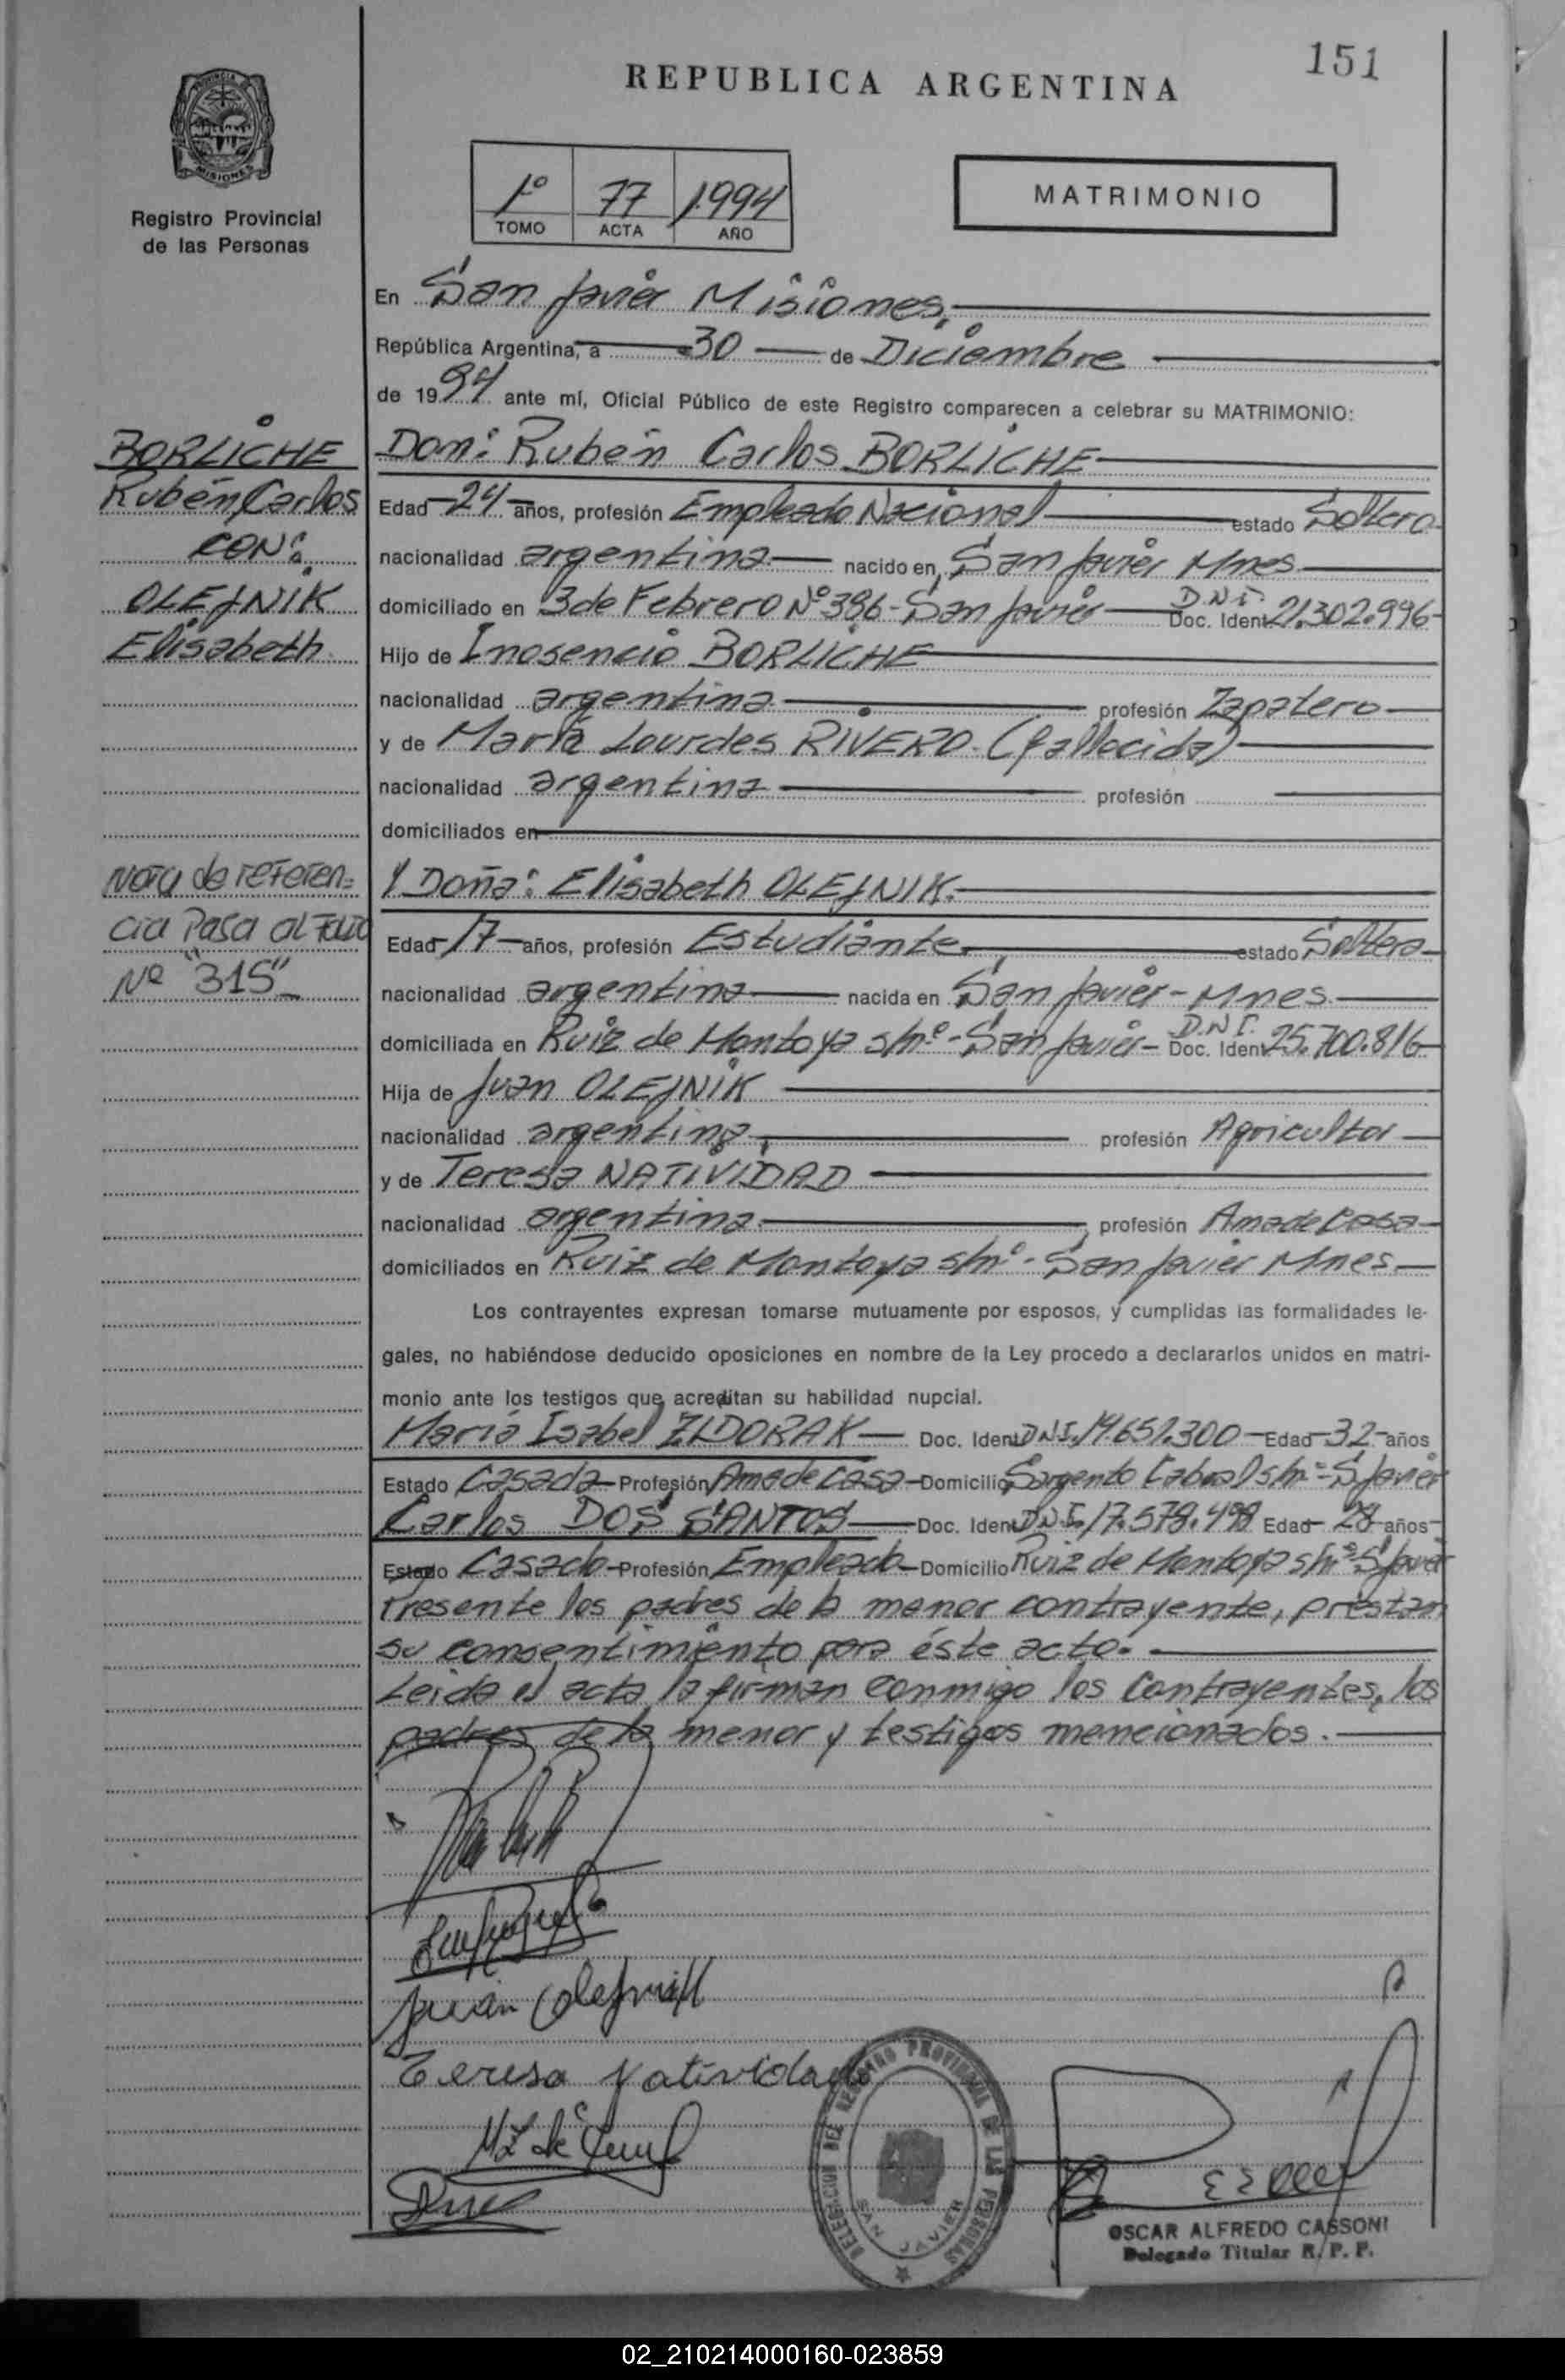 151
REPUBLICA ARGENTINA
PROVINCIA
MISIONES
Registro Provincial
de las Personas
1º 77 1994
TOMO ACTA AÑO
MATRIMONIO
En San Javier Misiones.
República Argentina, a 30 de Diciembre
de 1994 ante mí, Oficial Público de este Registro comparecen a celebrar su MATRIMONIO:
BORLICHE
Rubén Carlos
CON:
OLEJNIK
Elisabeth
Don: Rubén Carlos BORLICHE
Edad 24 años, profesión Empleado Nacional estado Soltero
nacionalidad argentina nacido en San Javier Mnes
domiciliado en 3 de Febrero Nº 386 - San Javier D.N.I. Doc. Ident 21.302.996
Hijo de Inosencio BORLICHE
nacionalidad argentina profesión Zapatero
y de María Lourdes RIVERO. (fallecida)
nacionalidad argentina profesión
domiciliados en
Nota de referen=
cia Pasa al Folio
Nº "315"
Y Doña: Elisabeth OLEJNIK.
Edad 17 años, profesión Estudiante. estado Soltera
nacionalidad argentina nacida en San Javier - Mnes.
domiciliada en Ruiz de Montoya s/nº - San Javier - D.N.I. Doc. Ident 25.700.816
Hija de Juan OLEJNIK
nacionalidad argentina profesión Agricultor
y de Teresa NATIVIDAD
nacionalidad argentina profesión Ama de Casa
domiciliados en Ruiz de Montoya s/nº - San Javier Mnes.
Los contrayentes expresan tomarse mutuamente por esposos, y cumplidas las formalidades le-
gales, no habiéndose deducido oposiciones en nombre de la Ley procedo a declararlos unidos en matri-
monio ante los testigos que acreditan su habilidad nupcial.
María Isabel ZIDORAK Doc. Ident D.N.I. 14.651.300 Edad 32 años
Estado Casada Profesión Ama de Casa Domicilio Sargento Cabral s/nº - S Javier
Carlos DOS SANTOS Doc. Ident D.N.I. 17.578.498 Edad 28 años
Estado Casado Profesión Empleado Domicilio Ruiz de Montoya s/nº - S Javier
Presente los padres de la menor contrayente, prestan
su consentimiento para éste acto.
Leida el acta la firman conmigo los contrayentes, los
padres de la menor y testigos mencionados.
Juan Olejnik
Teresa Natividad
DELEGACION DEL REGISTRO PROVINCIAL DE LAS PERSONAS
SAN JAVIER
OSCAR ALFREDO CASSONI
Delegado Titular R. P. P.
02_210214000160-023859